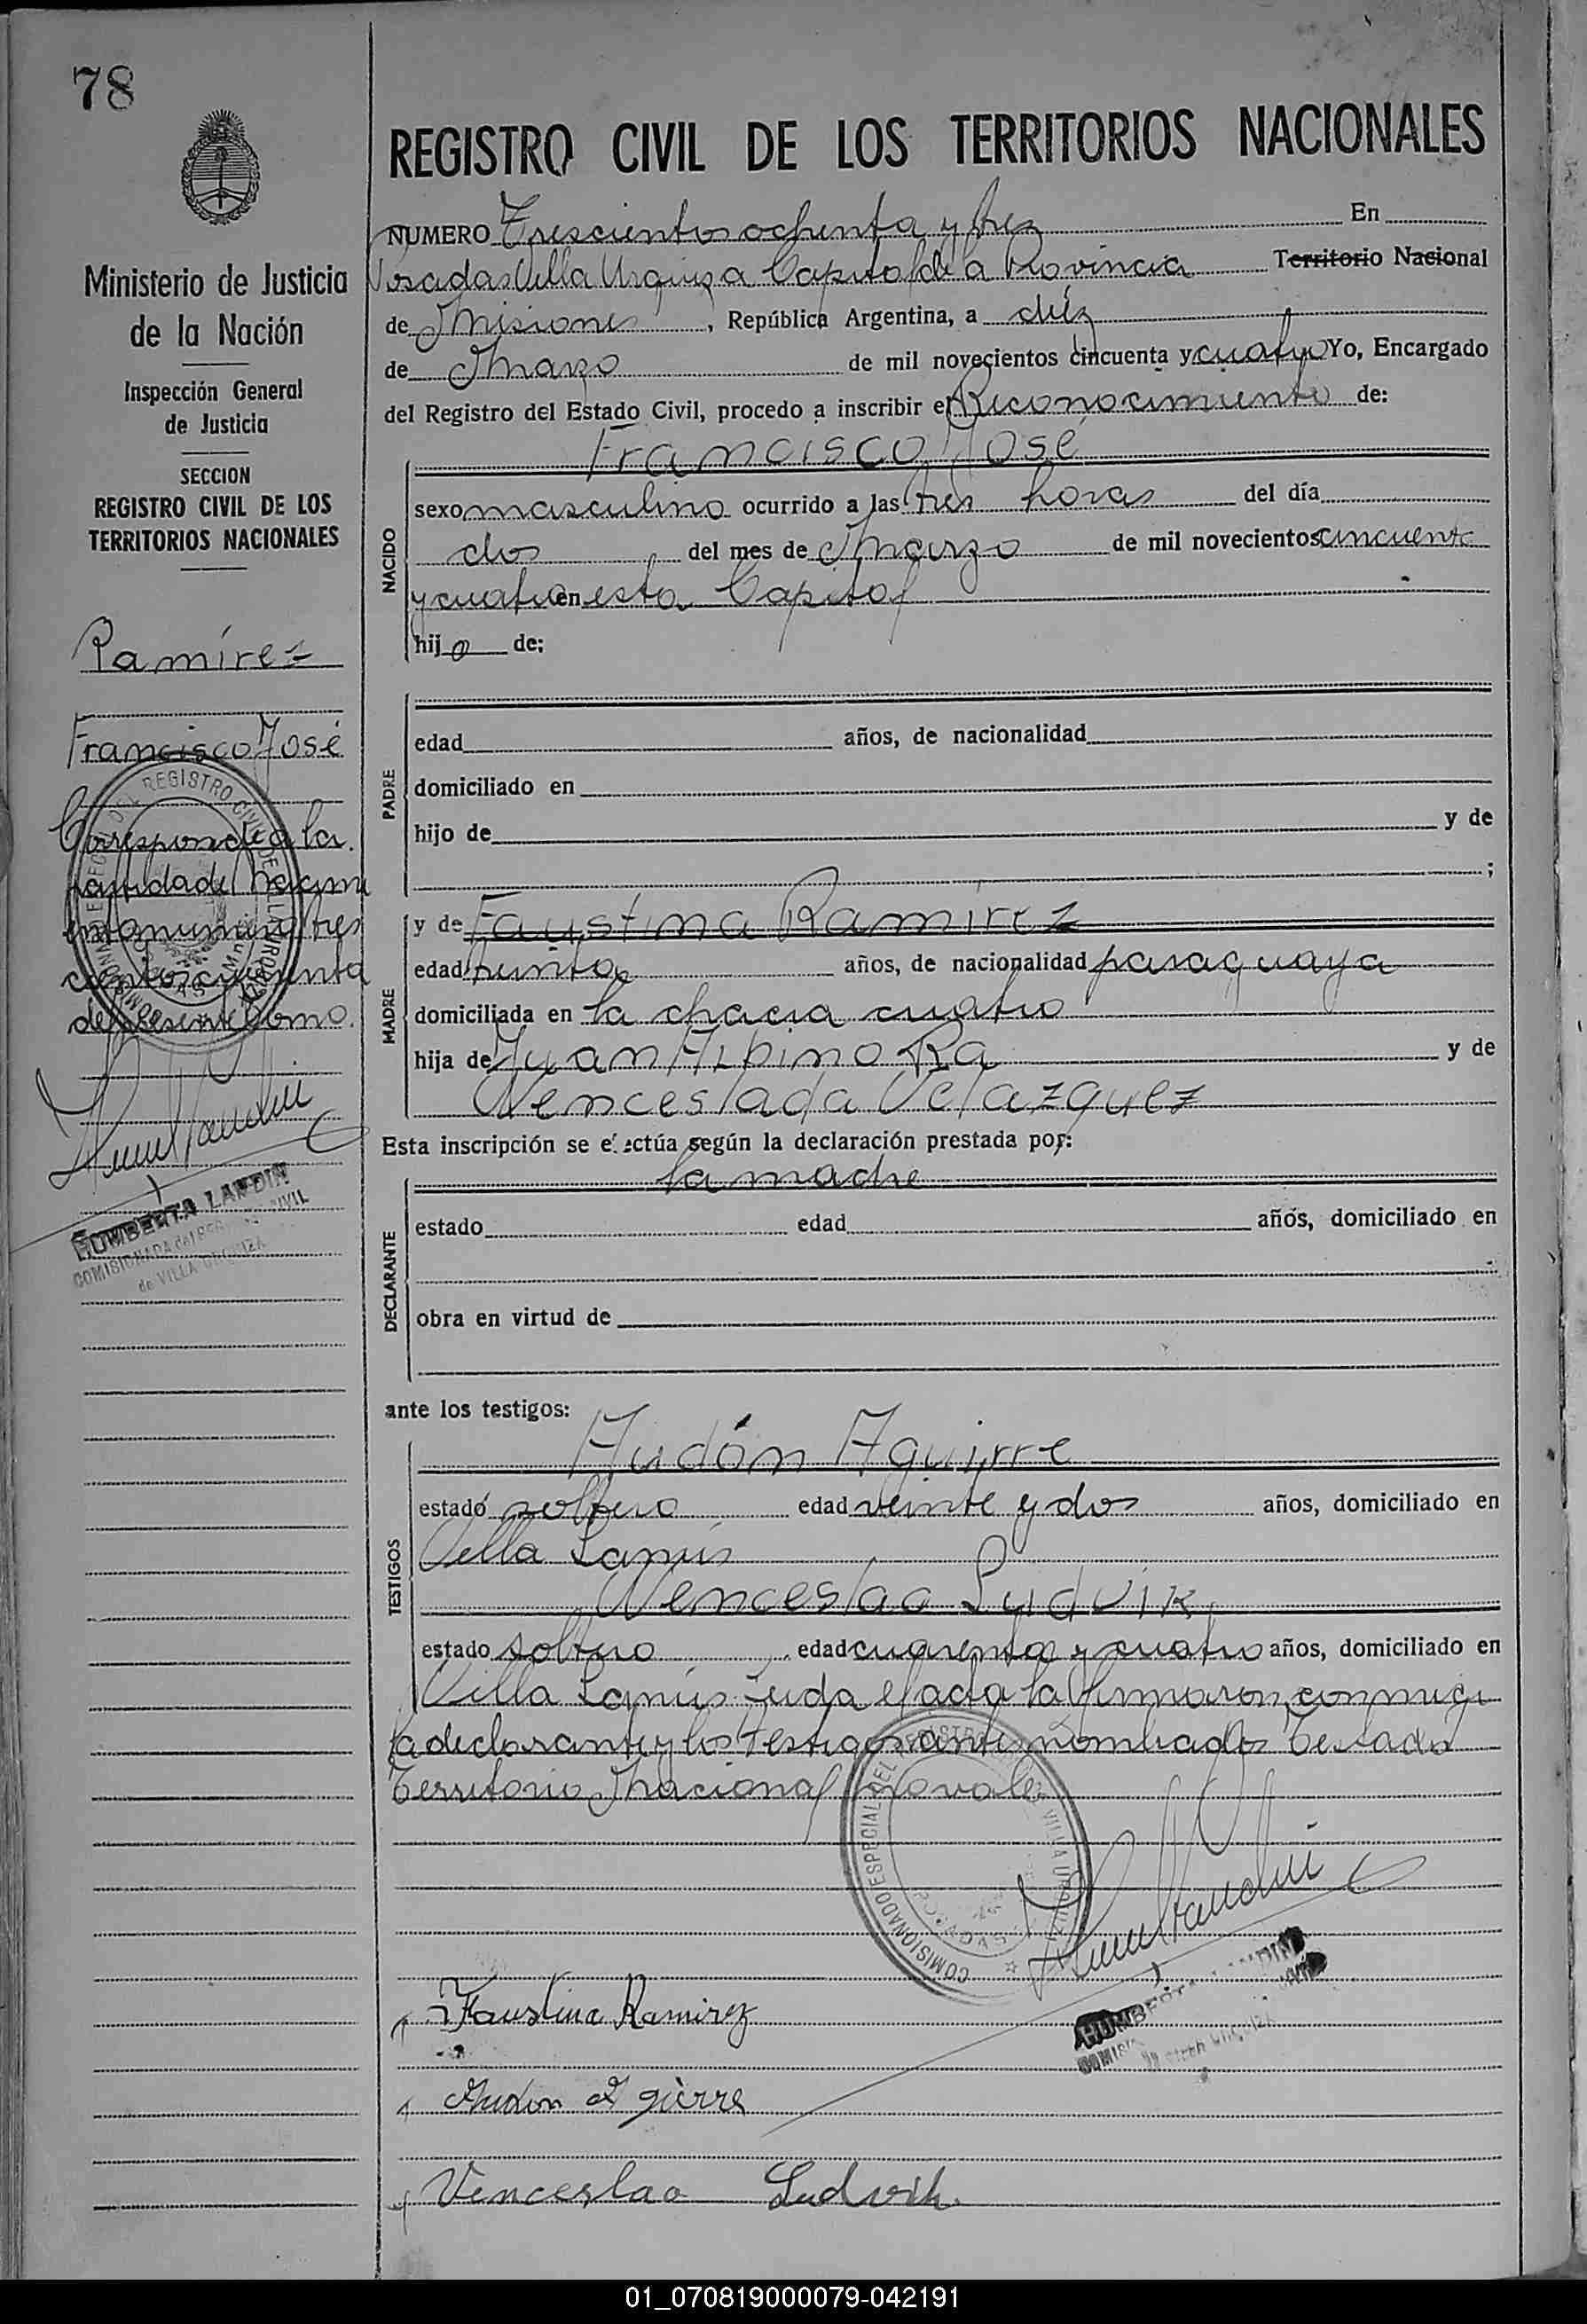 78
REGISTRO CIVIL DE LOS TERRITORIOS NACIONALES
Ministerio de Justicia
de la Nación
Inspección General
de Justicia
SECCION
REGISTRO CIVIL DE LOS
TERRITORIOS NACIONALES
Ramírez
Francisco José
Corresponde a la
partida de Nacimi
ento numero tres
cientos cincuenta
del presente tomo.
HUMBERTA LANDIN
COMISIONADA del REG CIVIL
de VILLA URQUIZA
NUMERO Trescientos ochenta y tres En
Posadas Villa Urquiza Capital de la Provincia Territorio Nacional
de Misiones, República Argentina, a diéz
de Marzo de mil novecientos cincuenta y cuatro Yo, Encargado
del Registro del Estado Civil, procedo a inscribir el Reconocimiento de:
Francisco José
NACIDO
sexo masculino ocurrido a las tres horas del día
dos del mes de Marzo de mil novecientos cincuenta
y cuatro en esta Capital
hijo de:
PADRE
edad años, de nacionalidad
domiciliado en
hijo de y de
;
MADRE
y de Faustina Ramírez
edad treinta años, de nacionalidad paraguaya
domiciliada en la chacra cuatro
hija de Juan Alpino Ra y de
Wenceslada Velazquez
Esta inscripción se efectúa según la declaración prestada por:
la madre
DECLARANTE
estado edad años, domiciliado en
obra en virtud de
ante los testigos:
TESTIGOS
Audón Aguirre
estado soltero edad veinte y dos años, domiciliado en
Villa Lanús
Wenceslao Ludvik
estado soltero edad cuarenta y cuatro años, domiciliado en
Villa Lanús Leida el acta la firmaron conmigo
la declarante y los testigos antes nombrados Testado
Territorio Nacional no vale
COMISIONADO ESPECIAL DEL REGISTRO CIVIL DE VILLA URQUIZA
POSADAS
HUMBERTA LANDIN
Faustina Ramirez
Audon Agirre
Venceslao Ludvik
01_070819000079-042191